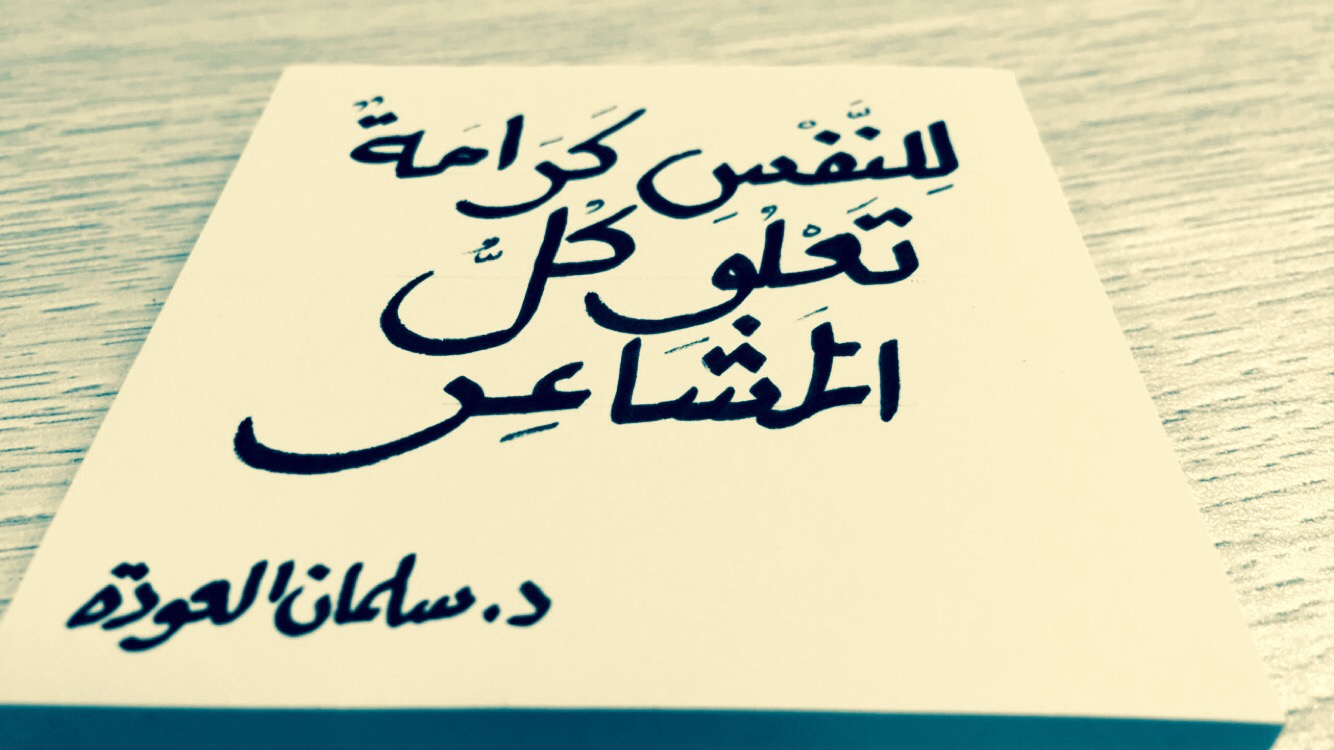 لِلنَّفْسِ كَرَامَةٌ
تَعْلُو كُلُّ
المَشَاعِر
د. سلمان العودة